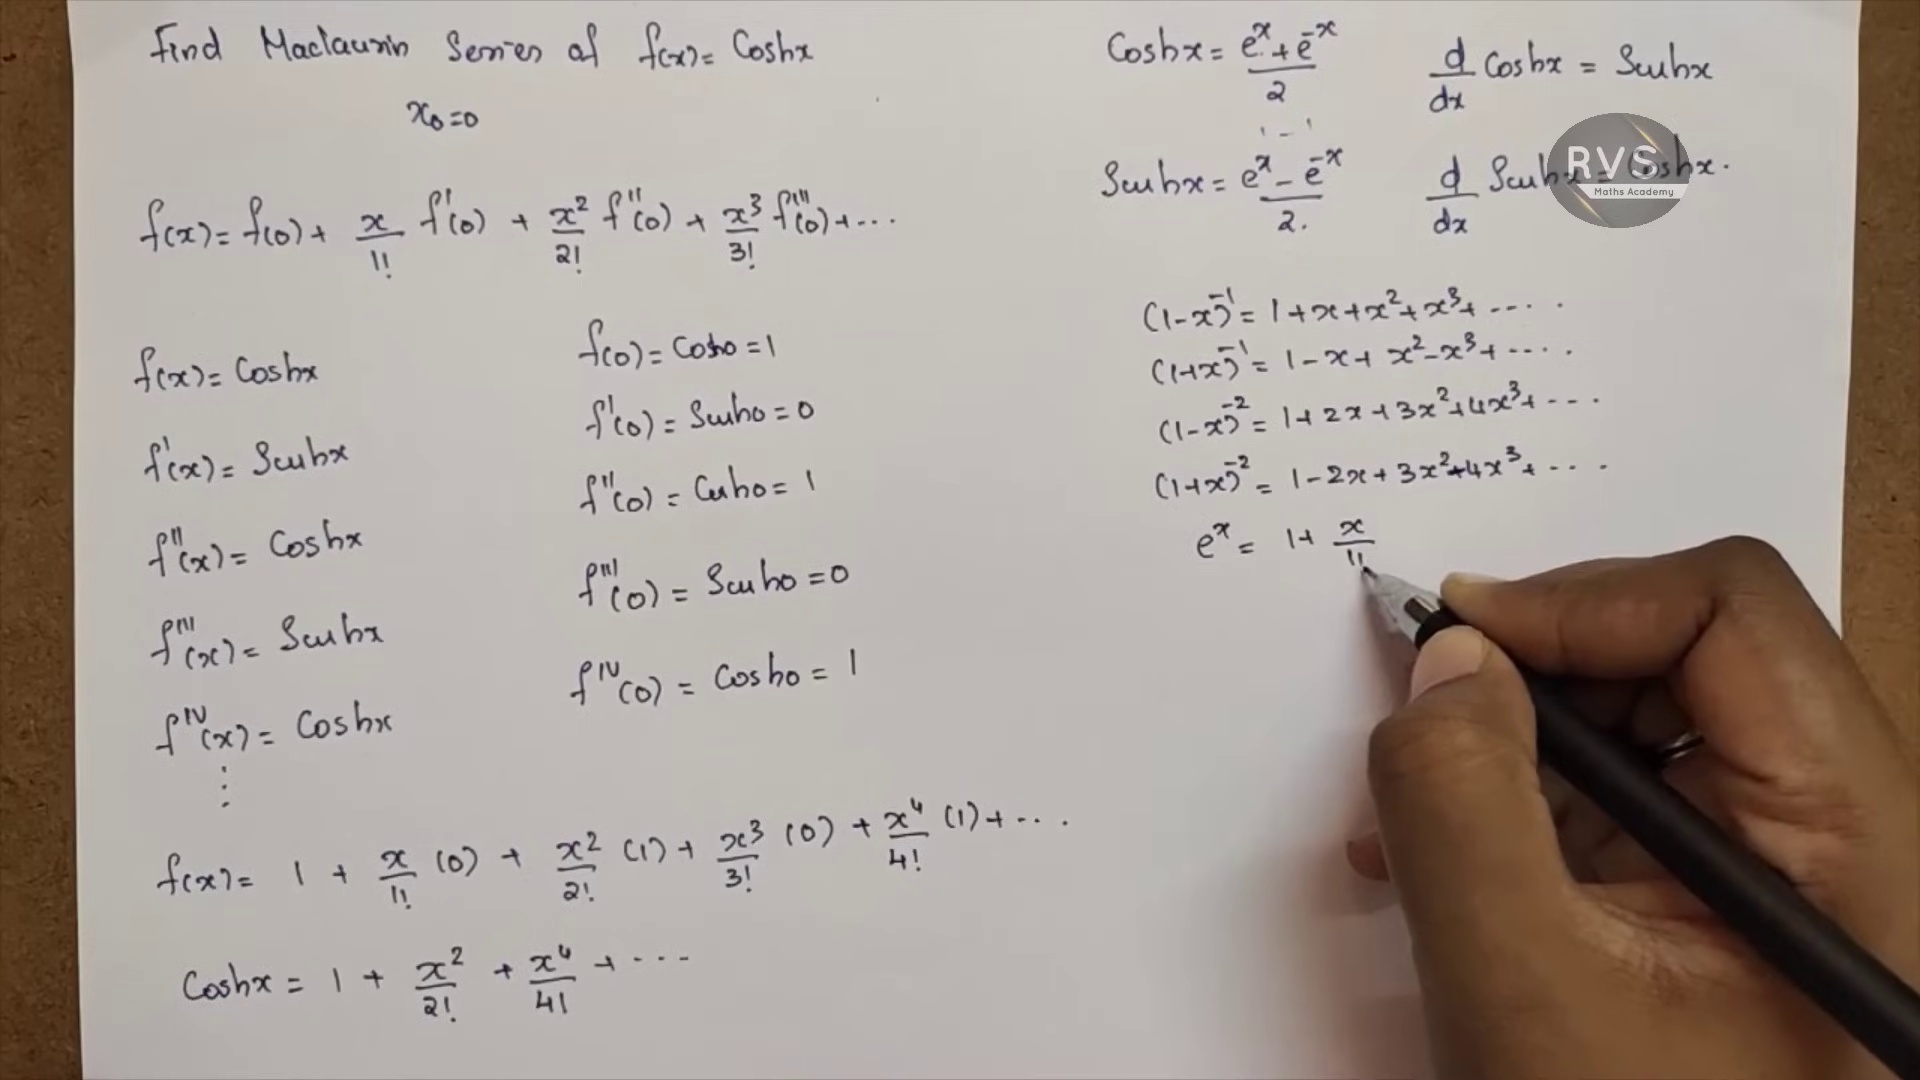 Find Maclaurin Series of f(x) = Coshx
x₀=0
f(x) = f(0) + x/1! f'(0) + x²/2! f''(0) + x³/3! f'''(0) + ...
f(x) = Coshx
f'(x) = Sinhx
f''(x) = Coshx
f'''(x) = Sinhx
f^IV(x) = Coshx
⋮
f(0) = Cosh0 = 1
f'(0) = Sinh0 = 0
f''(0) = Cosh0 = 1
f'''(0) = Sinh0 = 0
f^IV(0) = Cosh0 = 1
f(x) = 1 + x/1! (0) + x²/2! (1) + x³/3! (0) + x⁴/4! (1) + ...
Coshx = 1 + x²/2! + x⁴/4! + ...
Coshx = (e^x + e^-x)/2
d/dx Coshx = Sinhx
1 - 1
Sinhx = (e^x - e^-x)/2.
d/dx Sinhx = Coshx.
RVS
Maths Academy
(1-x)^-1 = 1+x+x²+x³+.....
(1+x)^-1 = 1-x+x²-x³+.....
(1-x)^-2 = 1+2x+3x²+4x³+....
(1+x)^-2 = 1-2x+3x²-4x³+....
e^x = 1+ x/1!